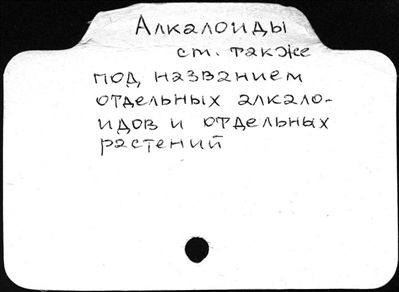 Алкалоиды
см. также
под названием
отдельных алкало-
идов и отдельных
растений